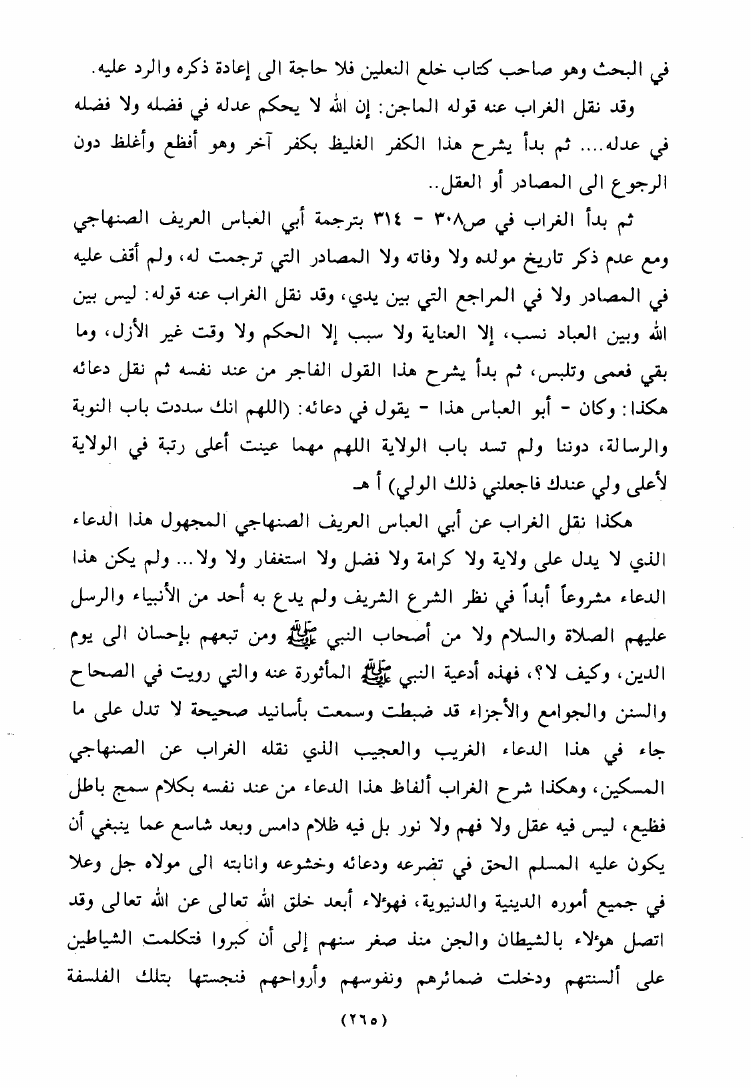 في البحث وهو صاحب كتاب خلع النعلين فلا حاجة الى إعادة ذكره والرد عليه.
وقد نقل الغراب عنه قوله الماجن: إن الله لا يحكم عدله في فضله ولا فضله
في عدله.... ثم بدأ يشرح هذا الكفر الغليظ بكفر آخر وهو أفظع وأغلظ دون
الرجوع الى المصادر أو العقل..
ثم بدأ الغراب في ص٣٠٨ - ٣١٤ بترجمة أبي العباس العريف الصنهاجي
ومع عدم ذكر تاريخ مولده ولا وفاته ولا المصادر التي ترجمت له، ولم أقف عليه
في المصادر ولا في المراجع التي بين يدي، وقد نقل الغراب عنه قوله: ليس بين
الله وبين العباد نسب، إلا العناية ولا سبب إلا الحكم ولا وقت غير الأزل، وما
بقي فعمى وتلبس، ثم بدأ يشرح هذا القول الفاجر من عند نفسه ثم نقل دعائه
هكذا: وكان - أبو العباس هذا - يقول في دعائه: (اللهم انك سددت باب النوبة
والرسالة، دوننا ولم تسد باب الولاية اللهم مهما عينت أعلى رتبة في الولاية
لأعلى ولي عندك فاجعلني ذلك الولي) أ هـ
هكذا نقل الغراب عن أبي العباس العريف الصنهاجي المجهول هذا الدعاء
الذي لا يدل على ولاية ولا كرامة ولا فضل ولا استغفار ولا ولا... ولم يكن هذا
الدعاء مشروعاً أبداً في نظر الشرع الشريف ولم يدع به أحد من الأنبياء والرسل
عليهم الصلاة والسلام ولا من أصحاب النبي ﷺ ومن تبعهم بإحسان الى يوم
الدين، وكيف لا؟، فهذه أدعية النبي ﷺ المأثورة عنه والتي رويت في الصحاح
والسنن والجوامع والأجزاء قد ضبطت وسمعت بأسانيد صحيحة لا تدل على ما
جاء في هذا الدعاء الغريب والعجيب الذي نقله الغراب عن الصنهاجي
المسكين، وهكذا شرح الغراب ألفاظ هذا الدعاء من عند نفسه بكلام سمج باطل
فظيع، ليس فيه عقل ولا فهم ولا نور بل فيه ظلام دامس وبعد شاسع عما ينبغي أن
يكون عليه المسلم الحق في تضرعه ودعائه وخشوعه وانابته الى مولاه جل وعلا
في جميع أموره الدينية والدنيوية، فهؤلاء أبعد خلق الله تعالى عن الله تعالى وقد
اتصل هؤلاء بالشيطان والجن منذ صغر سنهم إلى أن كبروا فتكلمت الشياطين
على ألسنتهم ودخلت ضمائرهم ونفوسهم وأرواحهم فنجستها بتلك الفلسفة
(٢٦٥)